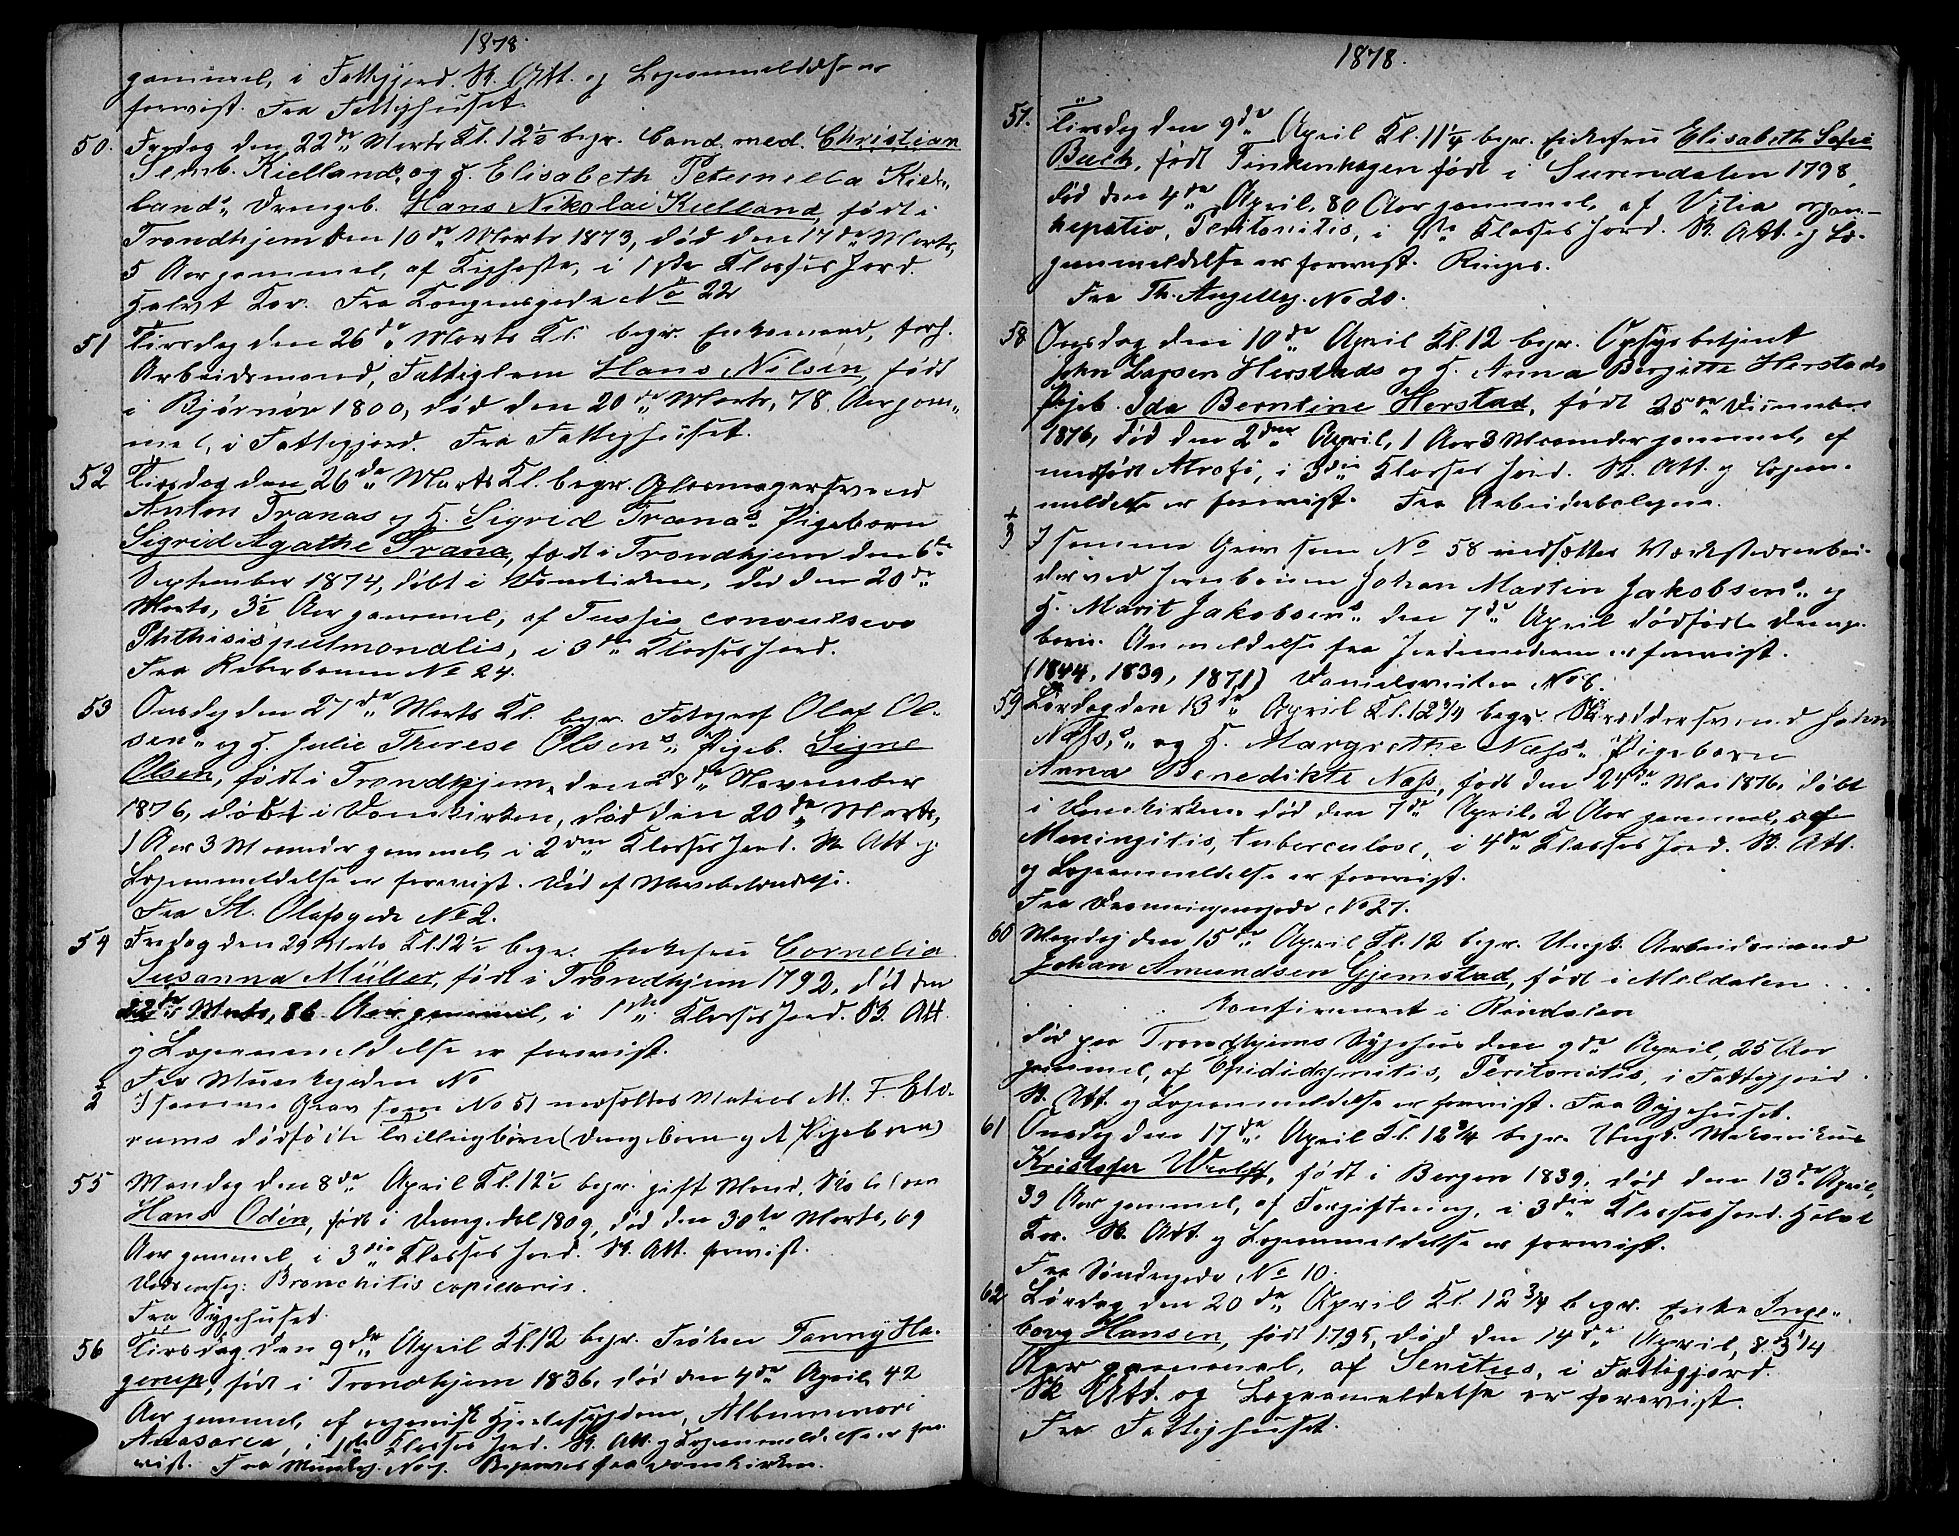 1878.
gammel, i Fattigjord. Sk. Att. og Lægeanmeldelse er
forevist. Fra Fattighuset.
50. Fredag den 22de Marts Kl. 12½ begr. Cand. med. Christian
Semb. Kiellands og H. Elisabeth Peternella Kiel-
lands Drengeb. Hans Nikolai Kielland, født i
Trondhjem den 10de Marts 1873, død den 17de Marts,
5 Aar gammel, af Kighoste, i 1ste Klasses Jord.
Halvt Kor. Fra Kongensgade No 22
51 Tirsdag den 26de Marts Kl. begr. Enkemand, forh.
Arbeidsmand, Fattiglem Hans Nilsen, født
i Bjørnør 1800, død den 20de Marts, 78 Aar gam-
mel, i Fattigjord. Fra Fattighuset.
52 Tirsdag den 26de Marts Kl. begr.
Anton Tranas og H. Sigrid Tranas Pigebarn
Sigrid Agathe Trana, født i Trondhjem den 6te
September 1874, døbt i Domkirken, død den 20de
Marts, 3½ Aar gammel, af Tussis convulsiva
Phthisis pulmonalis, i 3die Klasses Jord.
Fra Reberbanen No 24.
53 Onsdag den 27de Marts Kl. begr. Fotograf Olaf Ol-
sens og H. Julie Therese Olsens Pigeb. Signe
Olsen, født i Trondhjem, den 28de November
1876, døbt i Domkirken, død den 20de Marts,
1 Aar 3 Maaneder gammel, i 2den Klasses Jord. Sk. Att og
Lægeanmeldelse er forevist. Død af Mavebetændelse.
Fra St. Olafsgade No 2.
54 Fredag den 29 Marts Kl. 12½ begr. Enkefru Cornelia
Susanna Müller, født i Trondhjem 1792, død den
22de Marts, 86 Aar gammel, i 1ste Klasses Jord. Sk. Att
og Lægeanmeldelse er forevist.
Fra Munkegaden No
† 2 I samme Grav som No 51 nedsattes Matros M. F.
dødfødte Tvillingbørn (Drengebarn og 1 Pigebarn)
55 Mandag den 8de April Kl. 12½ begr. gift Mand,
Hans Odén, født i 1809, død den 30te Marts, 69
Aar gammel, i 3die Klasses Jord. Sk. Att. forevist.
Dødsaarsag: Bronchitis capillaris.
Fra Sygehuset.
56 Tirsdag den 9de April Kl. 12 begr. Frøken Fanny Ha-
gerup, født i Trondhjem 1836, død den 4de April, 42
Aar gammel, af organisk Hjertesygdom, Albuminuri
Anasarca, i 1ste Klasses Jord. Sk. Att. og Lægeanmeldelse er fore-
vist. Fra Munkeg. No Begraves fra Domkirken.
1878.
57. Tirsdag den 9de April Kl. 11¼ begr. Enkefru Elisabeth Sofie
Buch, født Finkenhagen født i Surendalen 1798,
død den 4de April, 80 Aar gammel, af Vitia organ-
hepatis, Peritonitis, i 1ste Klasses Jord. Sk. Att. og Læ-
geanmeldelse er forevist. Ringes.
Fra Th. Angellsg. No 20.
58 Onsdag den 10de April Kl. 12 begr. Opsynsbetjent
John Larsen Herstads og H. Anna Bergitte Herstads
Pigeb. Ida Berntine Herstad, født 25de December
1876, død den 2den April, 1 Aar 3 Maaneder gammel, af
medfødt Atrofi, i 3die Klasses Jord. Sk. Att. og Lægean-
meldelse er forevist. Fra Arbeiderboligerne.
† 3 I samme Grav som No 58 nedsattes Værkstedsarbei-
der ved Jernbanen Johan Martin Jakobsens og
H. Marit Jakobsens den 7de April dødfødte Drenge-
barn. Anmeldelse fra Jordemoderen er forevist.
(1844, 1839, 1871) Danielsveiten No 6.
59 Lørdag den 13de April Kl. 12¾ begr. Skræddersvend Johan
Næss's og H. Margrethe Næss's Pigebarn
Anna Benedikte Næss, født den 24de Mai 1876, døbt
i Domkirken død den 7de April, 2 Aar gammel, af
Meningitis, tuberculose, i 4de Klasses Jord. Sk. Att.
og Lægeanmeldelse er forevist.
Fra Dronningensgade No 27.
60 Mandag den 15de April Kl. 12 begr. Ungk. Arbeidsmand
Johan Amundsen Gjemstad, født i Meldalen ...
Konfirmeret i Rindalen
død paa Trondhjems Sygehus den 9de April, 25 Aar
gammel, af Epididymitis, Peritonitis, i Fattigjord.
Sk. Att. og Lægeanmeldelse er forevist. Fra Sygehuset.
61 Onsdag den 17de April Kl. 12¾ begr. Ungk. Mekanikus
Kristofer Wulff, født i Bergen 1839, død den 13de April,
39 Aar gammel, af Forgiftning, i 3die Klasses Jord. Halvt
Kor. Sk. Att. og Lægeanmeldelse er forevist.
Fra Søndregade No 10.
62 Lørdag den 20de April Kl. 12¾ begr. Enke Inge-
borg Hansen, født 1795, død den 14de April, 83¼
Aar gammel, af Senectus, i Fattigjord.
Sk Att. og Lægeanmeldelse er forevist.
Fra Fattighuset.